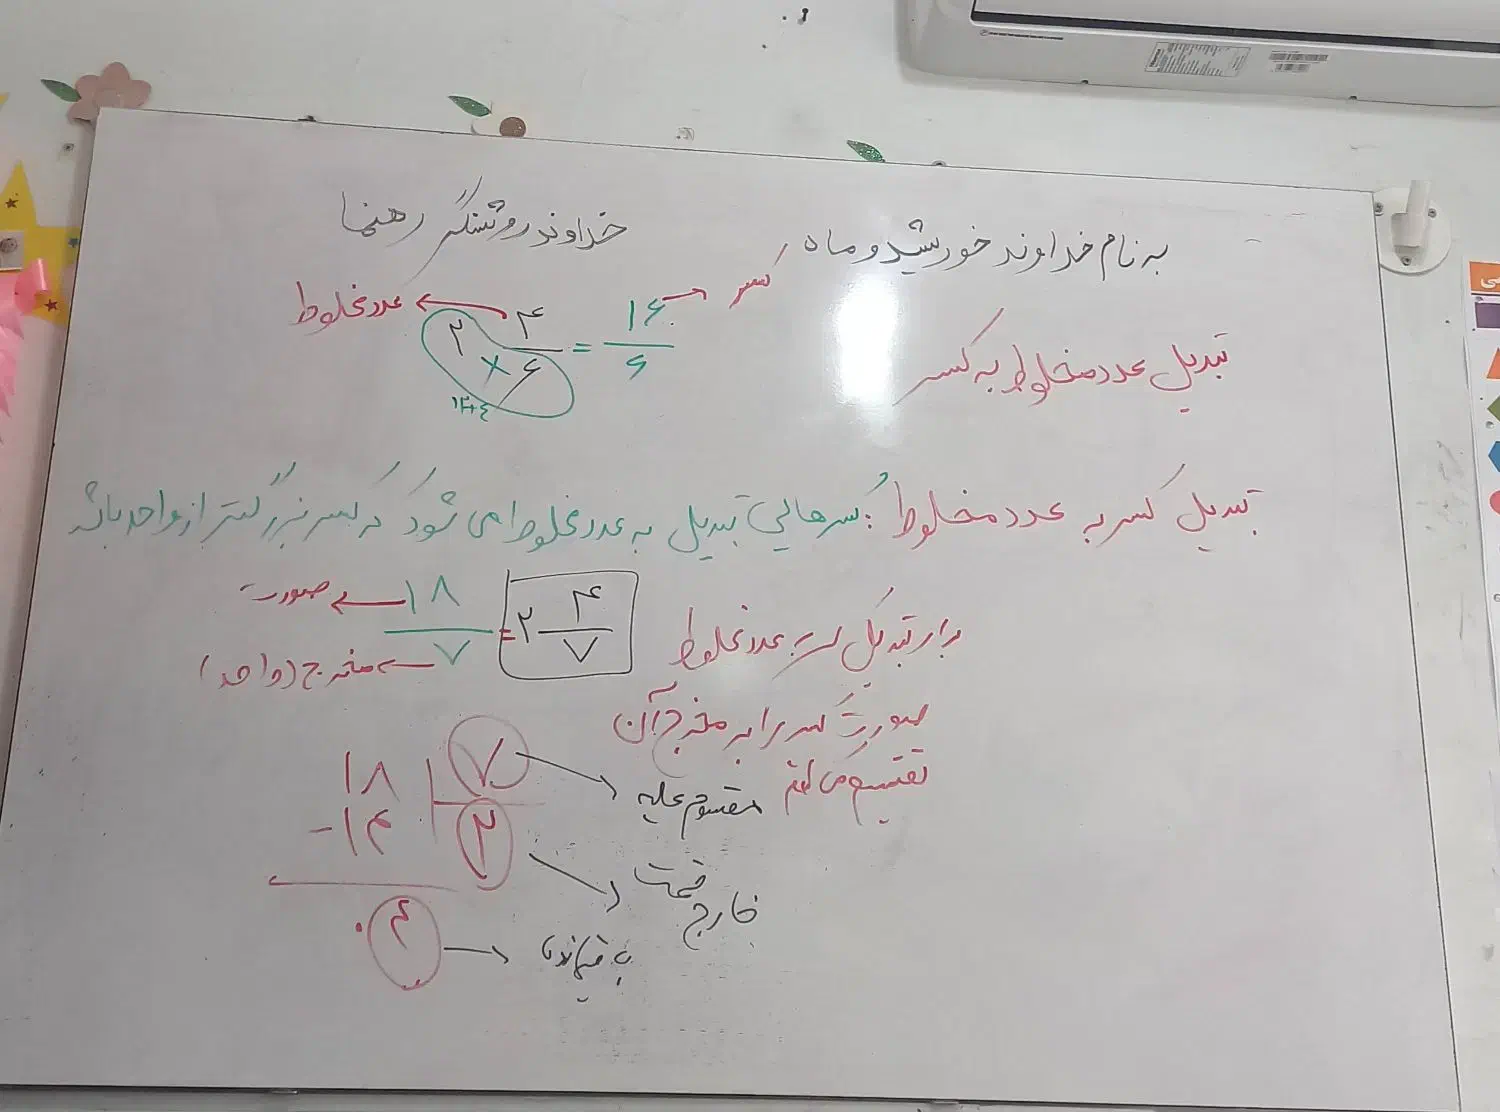 به نام خداوند خورشید و ماه خداوند روشنگر رهنما
تبدیل عدد مخلوط به کسر
عدد مخلوط ← ۲ ۴/۶ = ۱۶/۶ → کسر
×
۱۲+۴
تبدیل کسر به عدد مخلوط: کسرهایی تبدیل به عدد مخلوط می شود که کسر بزرگتر از واحد باشد
صورت ← ۱۸
مخرج (واحد) ← ۷
= ۲ ۴/۷
برا تبدیل کسر به عدد مخلوط
صورت کسر را بر مخرج آن
تقسیم می کنیم
۱۸ | ۷ → مقسوم علیه
-۱۴ ۲ → خارج قسمت
۰۴ → باقیمانده